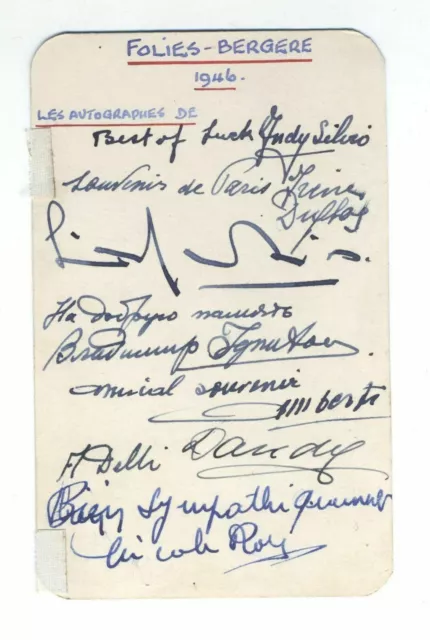 FOLIES-BERGERE
1946.
LES AUTOGRAPHES DE
Best of Luck Indy Silvio
Souvenir de Paris
На добрую память
Владимир Игнатов
amical souvenir
Dandy
F Delli
Bien sympathiquement
Nicole Roy